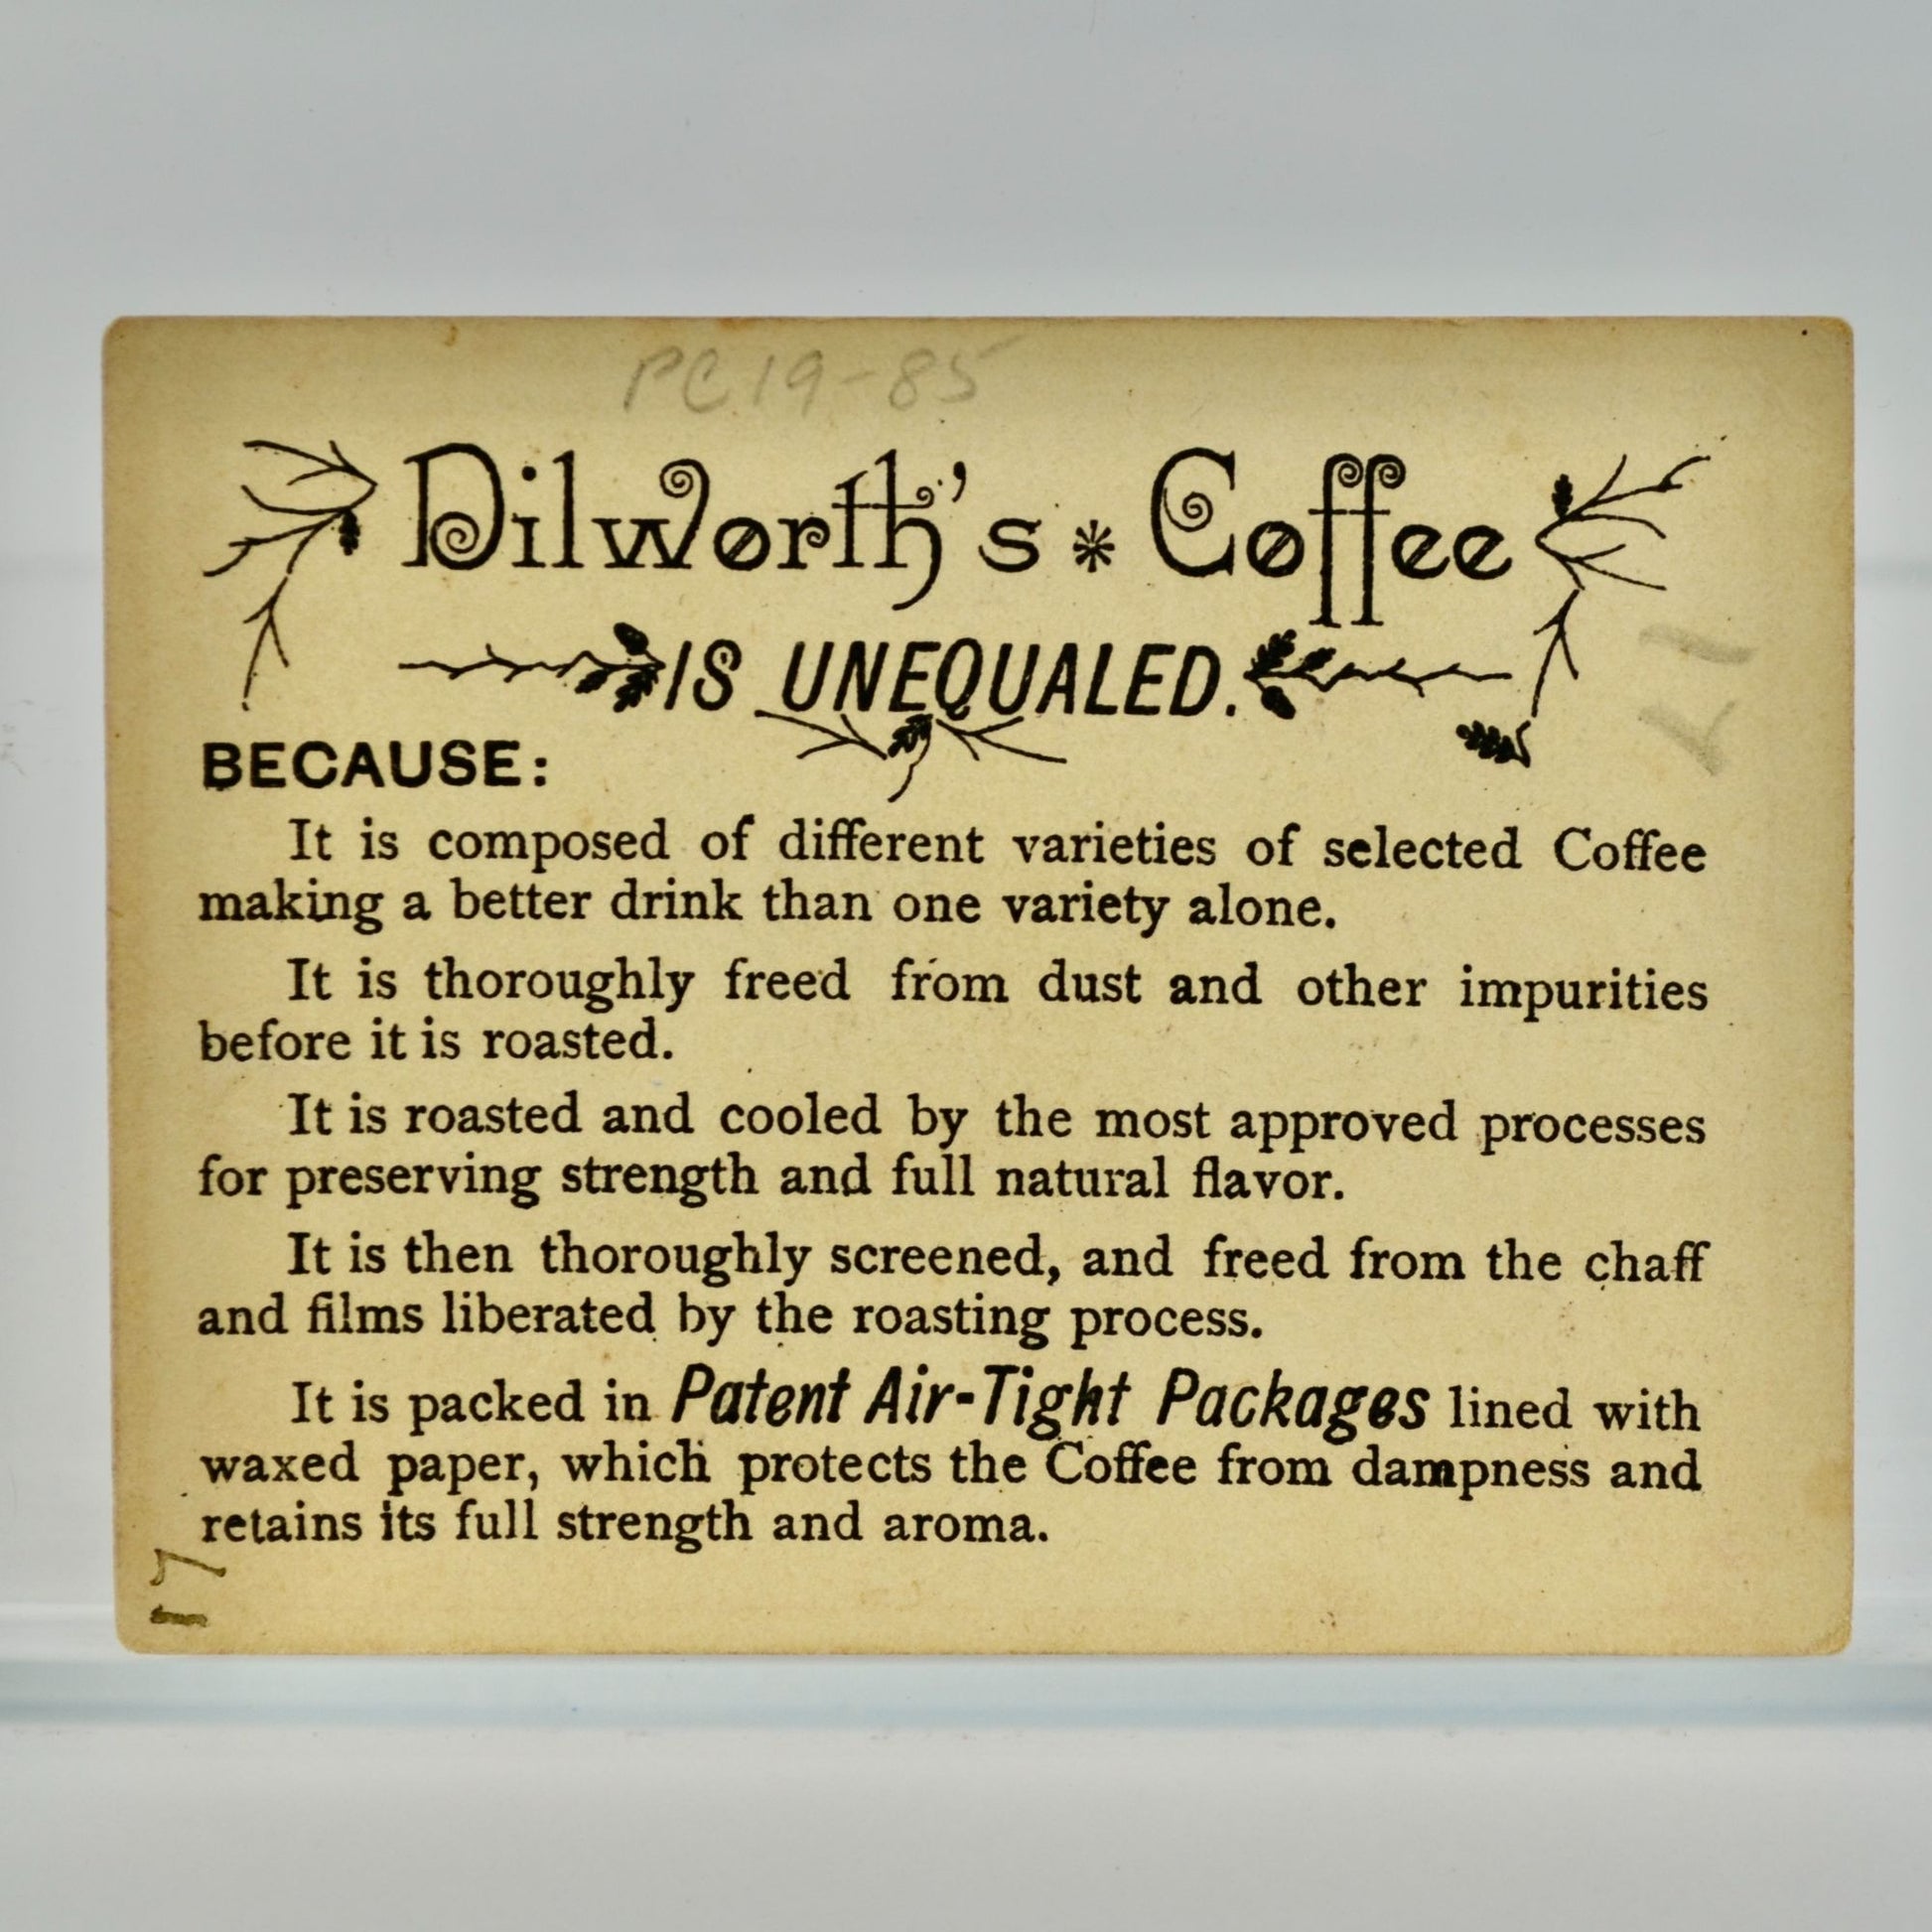 PC19-85
Dilworth's * Coffee
IS UNEQUALED.
BECAUSE:
It is composed of different varieties of selected Coffee
making a better drink than one variety alone.
It is thoroughly freed from dust and other impurities
before it is roasted.
It is roasted and cooled by the most approved processes
for preserving strength and full natural flavor.
It is then thoroughly screened, and freed from the chaff
and films liberated by the roasting process.
It is packed in Patent Air-Tight Packages lined with
waxed paper, which protects the Coffee from dampness and
retains its full strength and aroma.
17